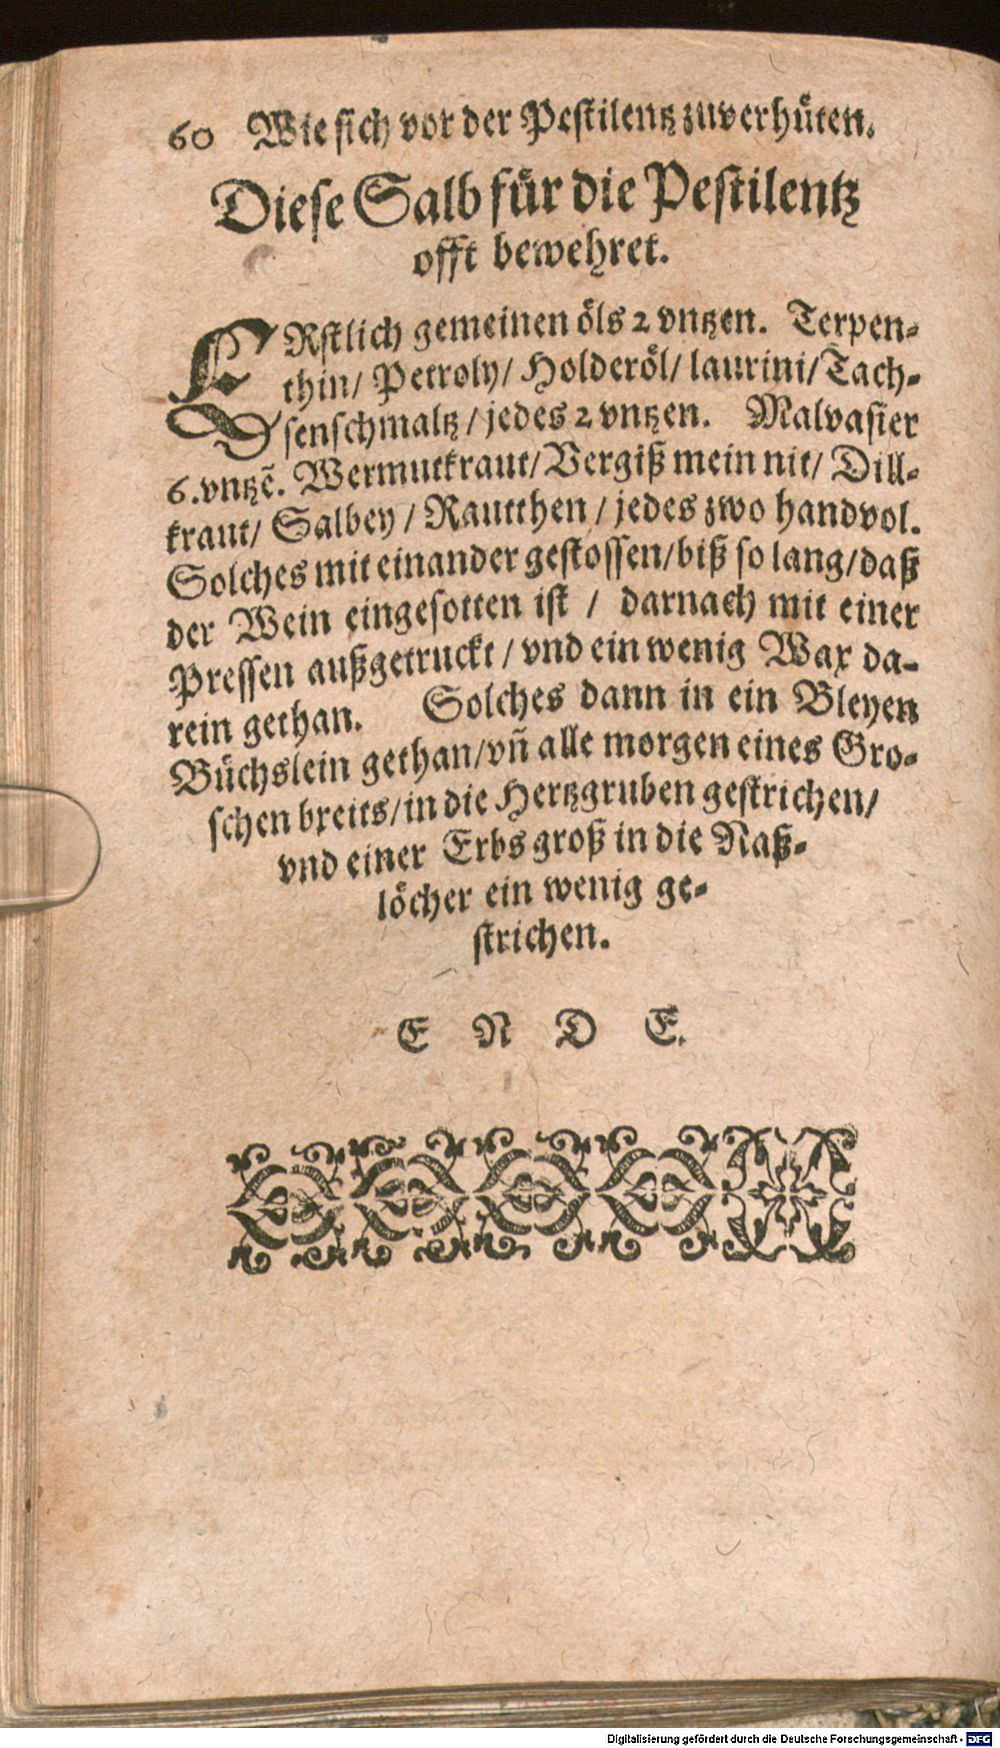 60 Wie sich vor der Pestilentz zuverhüten.
Diese Salb für die Pestilentz
offt bewehret.
ERstlich gemeinen öls 2 vntzen. Terpen-
thin/ Petroly/ Holderöl/ laurini/ Tach-
senschmaltz/ jedes 2 vntzen. Malvasier
6. vntzẽ. Wermutkraut/ Vergiß mein nit/ Dill-
kraut/ Salbey/ Rautthen/ jedes zwo handvol.
Solches mit einander gestossen/ biß so lang/ daß
der Wein eingesotten ist/ darnach mit einer
Pressen außgetruckt/ vnd ein wenig Wax da-
rein gethan. Solches dann in ein Bleyen
Büchslein gethan/ vñ alle morgen eines Gro-
schen breits/ in die Hertzgruben gestrichen/
vnd einer Erbs groß in die Naß-
löcher ein wenig ge-
strichen.
E N D E.
Digitalisierung gefördert durch die Deutsche Forschungsgemeinschaft - DFG